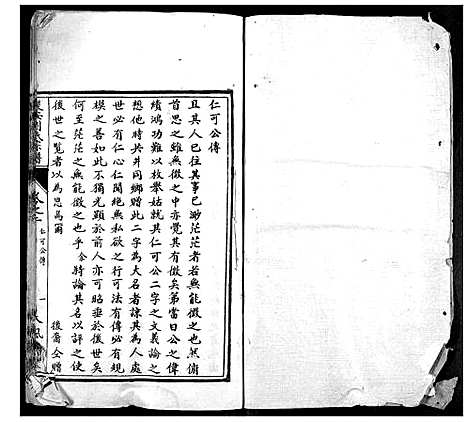 仁可公傳
且其人已往其事已渺茫茫者若無能徵之也然俯
首思之雖無徵之中亦覺其有徵矣第當日公之偉
績鴻功難以枚舉姑就其仁可公二字之文義論之
想他時於井同鄉贈此二字為大名者諒其為人處
世必有仁心仁聞絕無私欲之行可法有傳必有規
模之善如此不獨光顯於前人亦可昭垂於後世矣
何至茫茫之無能徵之也乎今特論其名以評之使
後世之覽者以為思焉爾
後裔仝贈
仁可公傳
一